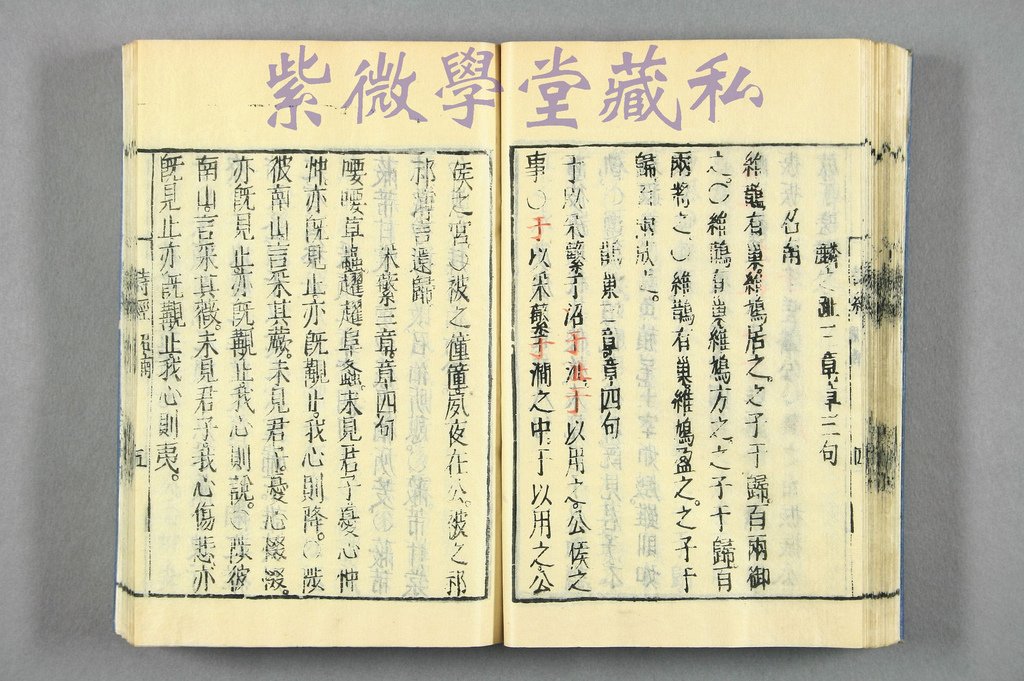 紫微學堂藏私
麟之趾三章章三句
召南
維鵲有巢維鳩居之。之子于歸。百兩御
之。○維鵲有巢維鳩方之。之子于歸百
兩將之○維鵲有巢。維鳩盈之。之子于
歸百兩成之。
鵲巢三章章四句
于以采蘩于沼于沚于以用之。公侯之
事○于以采蘩于澗之中。于以用之公
侯之宮○被之僮僮夙夜在公。被之祁
祁。薄言還歸
采蘩三章章四句
喓喓草蟲趯趯阜螽。未見君子憂心忡
忡。亦既見止亦既覯止。我心則降。○陟
彼南山言采其蕨。未見君子。憂心惙惙。
亦既見止亦既覯止我心則說。○陟彼
南山。言采其薇。未見君子。我心傷悲亦
既見止亦既覯止我心則夷。
詩經
召南
五